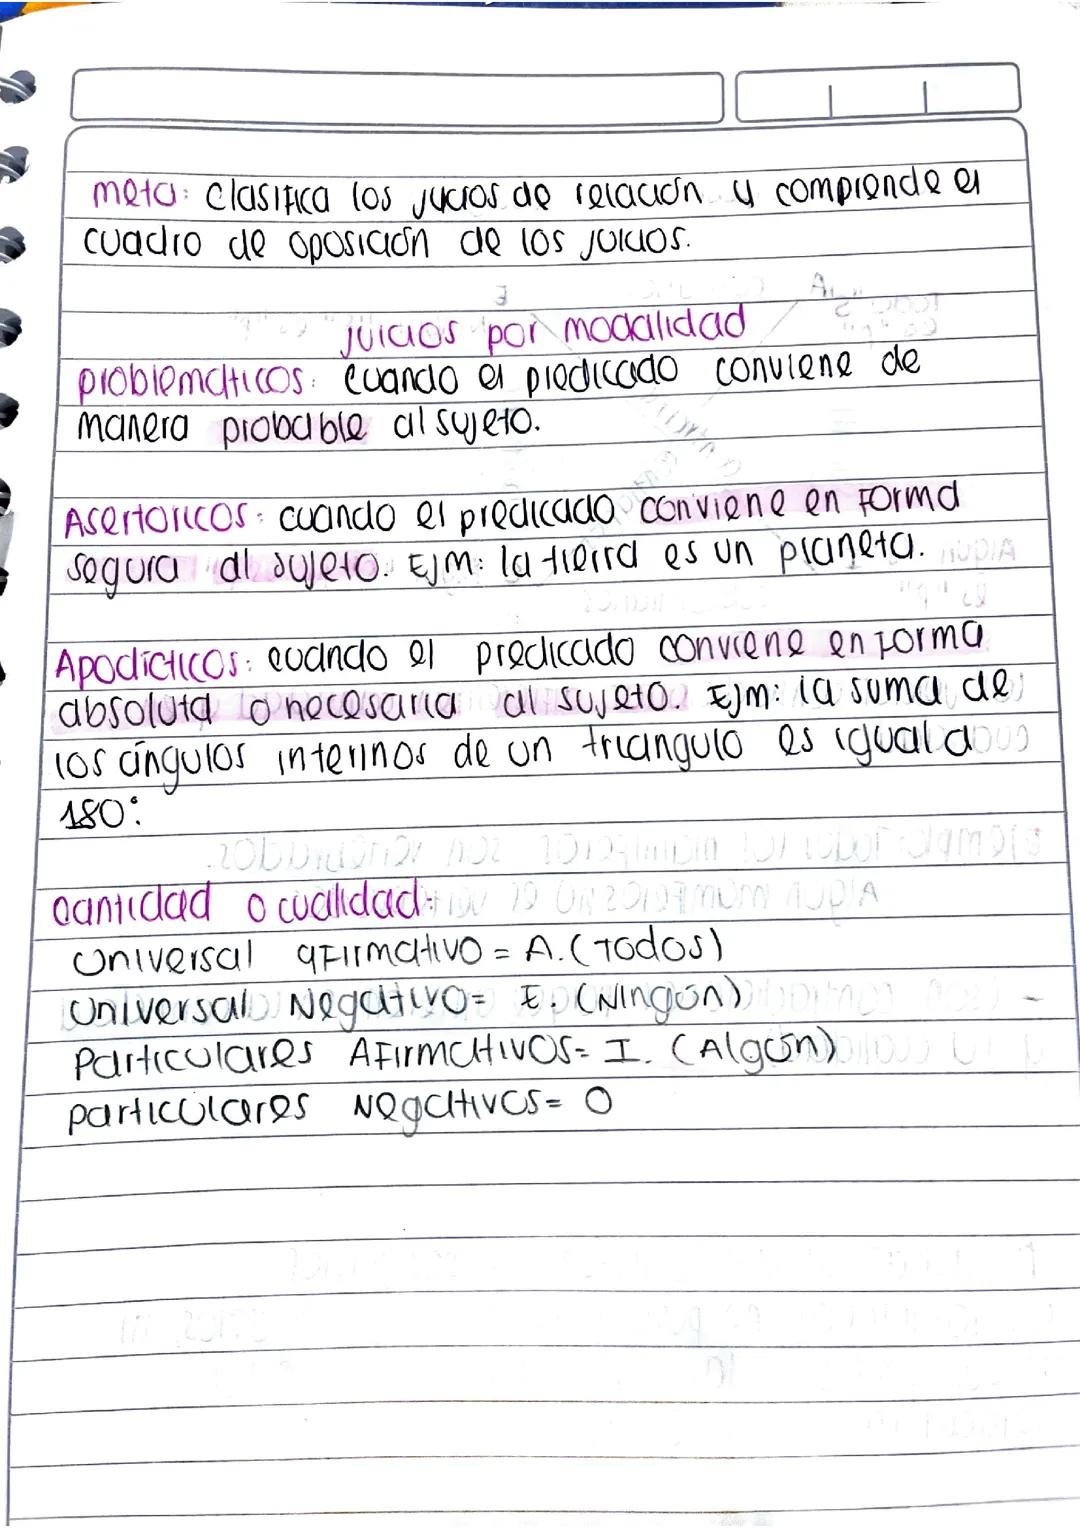 meta: clasifica los juicios de relación y comprende el
cuadro de oposición de los juicios.
juicios por modalidad
problemáticos: cuando el predicado conviene de
manera probable al sujeto.
Asertoricos: cuando el predicado conviene en forma
segura al sujeto. Ejm: la tierra es un planeta.
Apodícticos: cuando el predicado conviene en forma
absoluta o necesaria al sujeto. Ejm: la suma de
los ángulos internos de un triangulo es igual a
180°.
cantidad o cualidad:
Universal afirmativo = A. (Todos)
Universal Negativo= E. (Ningún)
Particulares Afirmativos= I. (Algún)
particulares Negativos= O